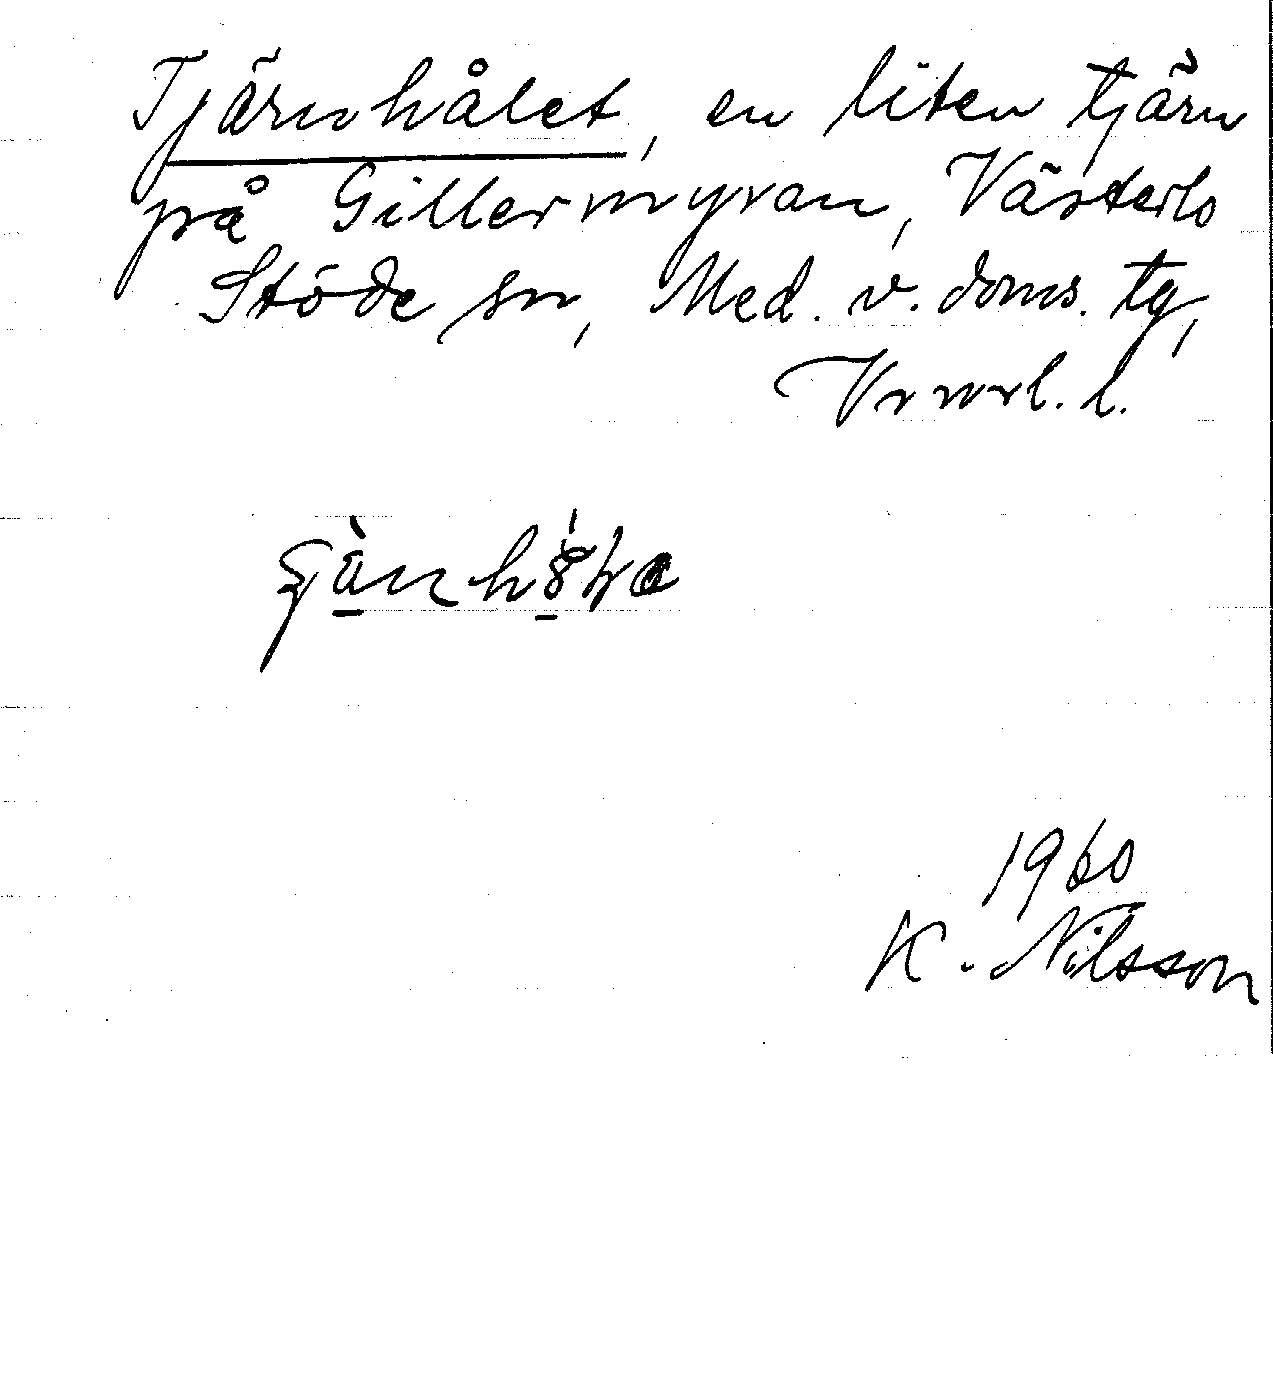 Tjärnhålet, en liten tjärn
på Gillermyran, Västerlo
Stöde sn, Med. v. doms. tg,
Vnorl. l.
1960
K. Nilsson